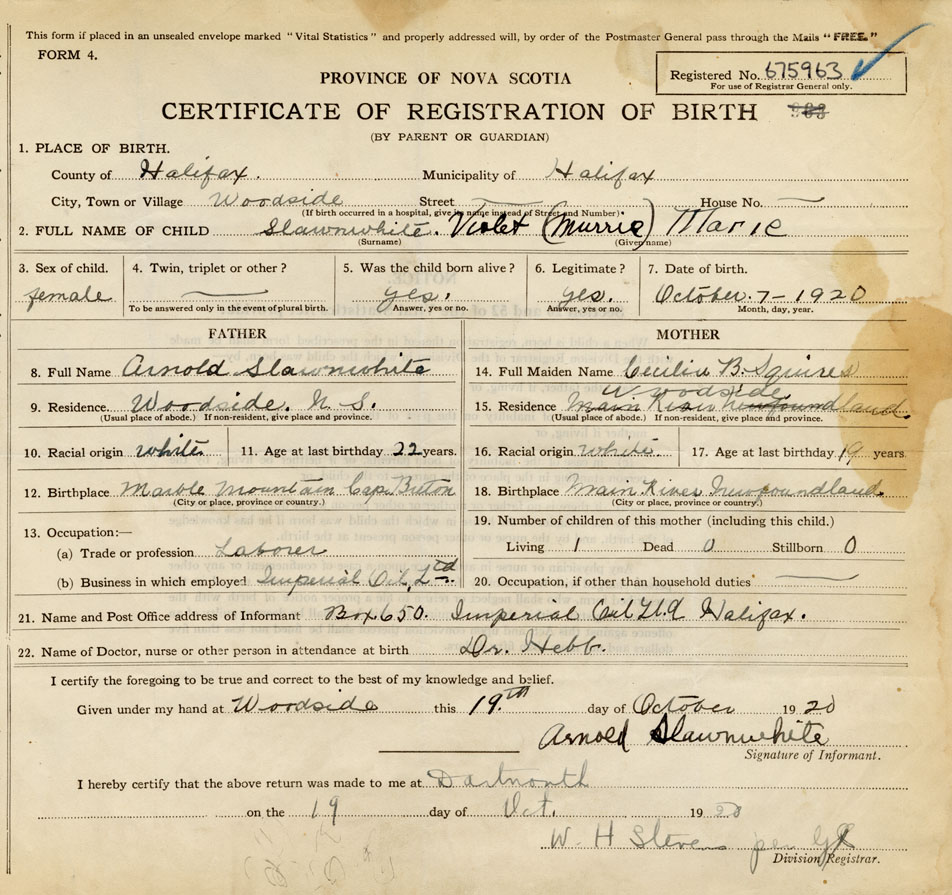 This form if placed in an unsealed envelope marked "Vital Statistics" and properly addressed will, by order of the Postmaster General pass through the Mails "FREE."
FORM 4.
Registered No. 675963
For use of Registrar General only.
PROVINCE OF NOVA SCOTIA
CERTIFICATE OF REGISTRATION OF BIRTH
(BY PARENT OR GUARDIAN)
1. PLACE OF BIRTH.
County of Halifax. Municipality of Halifax
City, Town or Village Woodside Street House No.
(If birth occurred in a hospital, give its name instead of Street and Number).
2. FULL NAME OF CHILD Slawnwhite. Violet (Murrie) Marie
(Surname) (Given name)
3. Sex of child. 4. Twin, triplet or other? 5. Was the child born alive? 6. Legitimate? 7. Date of birth.
female yes. yes. October. 7 - 1920
To be answered only in the event of plural birth. Answer, yes or no. Answer, yes or no. Month, day, year.
FATHER MOTHER
8. Full Name Arnold Slawnwhite 14. Full Maiden Name Cecilia B. Squires
Woodside
9. Residence. Woodside. N. S. 15. Residence Main River Newfoundland.
(Usual place of abode.) If non-resident, give place and province. (Usual place of abode.) If non-resident, give place and province.
10. Racial origin white 11. Age at last birthday 22 years. 16. Racial origin white. 17. Age at last birthday 19 years
12. Birthplace Marble Mountain Cape Breton 18. Birthplace Main River Newfoundland.
(City or place, province or country.) (City or place, province or country.)
13. Occupation:— 19. Number of children of this mother (including this child.)
(a) Trade or profession Laborer Living 1 Dead 0 Stillborn 0
(b) Business in which employed Imperial Oil, Ltd 20. Occupation, if other than household duties
21. Name and Post Office address of Informant Box 650. Imperial Oil Ltd Halifax.
22. Name of Doctor, nurse or other person in attendance at birth Dr. Hebb.
I certify the foregoing to be true and correct to the best of my knowledge and belief.
Given under my hand at Woodside this 19th day of October 1920
Arnold Slawnwhite
Signature of Informant.
I hereby certify that the above return was made to me at Dartmouth
on the 19 day of Oct. 1920
W. H Stevens per
Division Registrar.